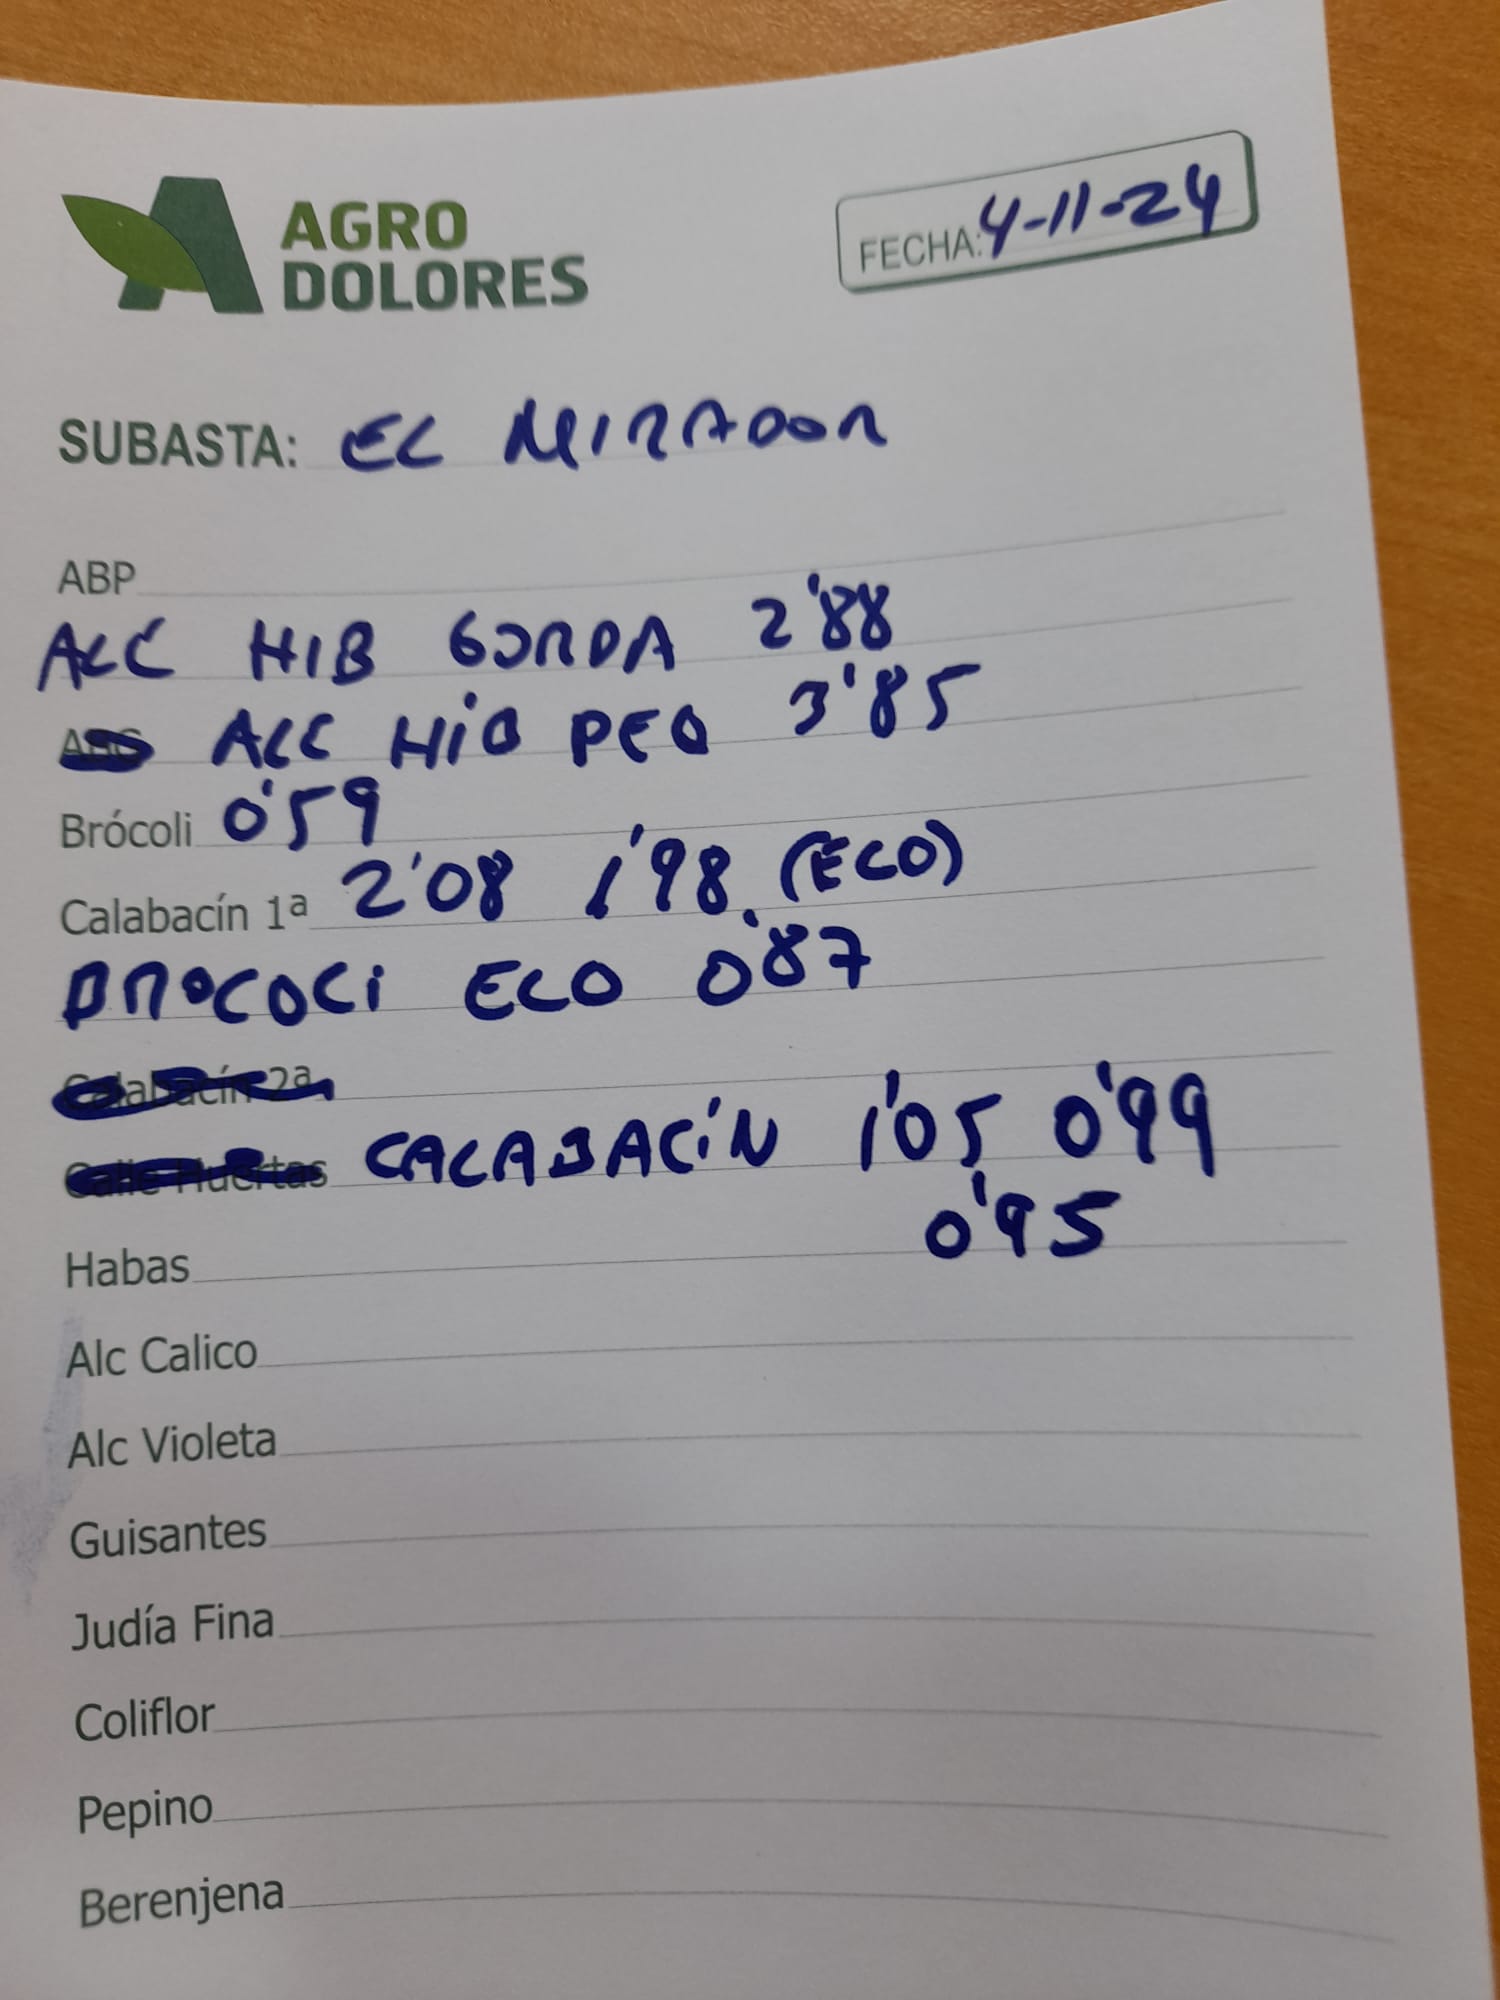 AGRO
DOLORES
FECHA: 4-11-24
SUBASTA: EL MIRADOR
ABP
ALC HIB GORDA 2'88
ALC HIB PEQ 3'85
Brócoli 0'59
Calabacín 1ª 2'08 1'98 (ECO)
BROCOLI ECO 0'87
Calabacín 2ª
Calle Huertas CALABACÍN 1'05 0'99
0'95
Habas
Alc Calico
Alc Violeta
Guisantes
Judía Fina
Coliflor
Pepino
Berenjena